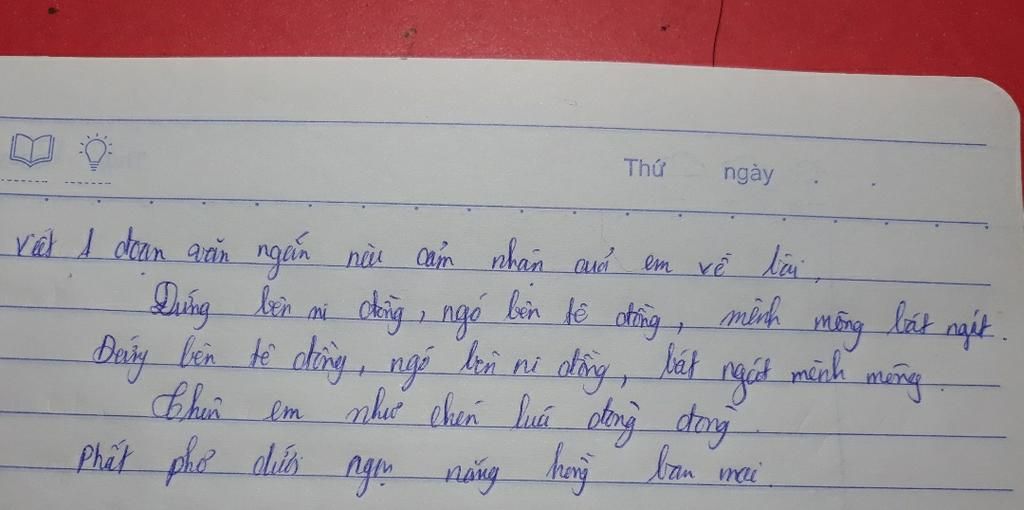 Thứ ngày
viết 1 đoạn văn ngắn nêu cảm nhận cuả em về bài.
Đứng bên ni đồng, ngó bên tê đồng, mênh mông bát ngát.
Đứng bên tê đồng, ngó bên ni đồng, bát ngát mênh mông.
thân em như chẽn luá đòng đòng.
phất phơ dưới ngọn nắng hồng ban mai.